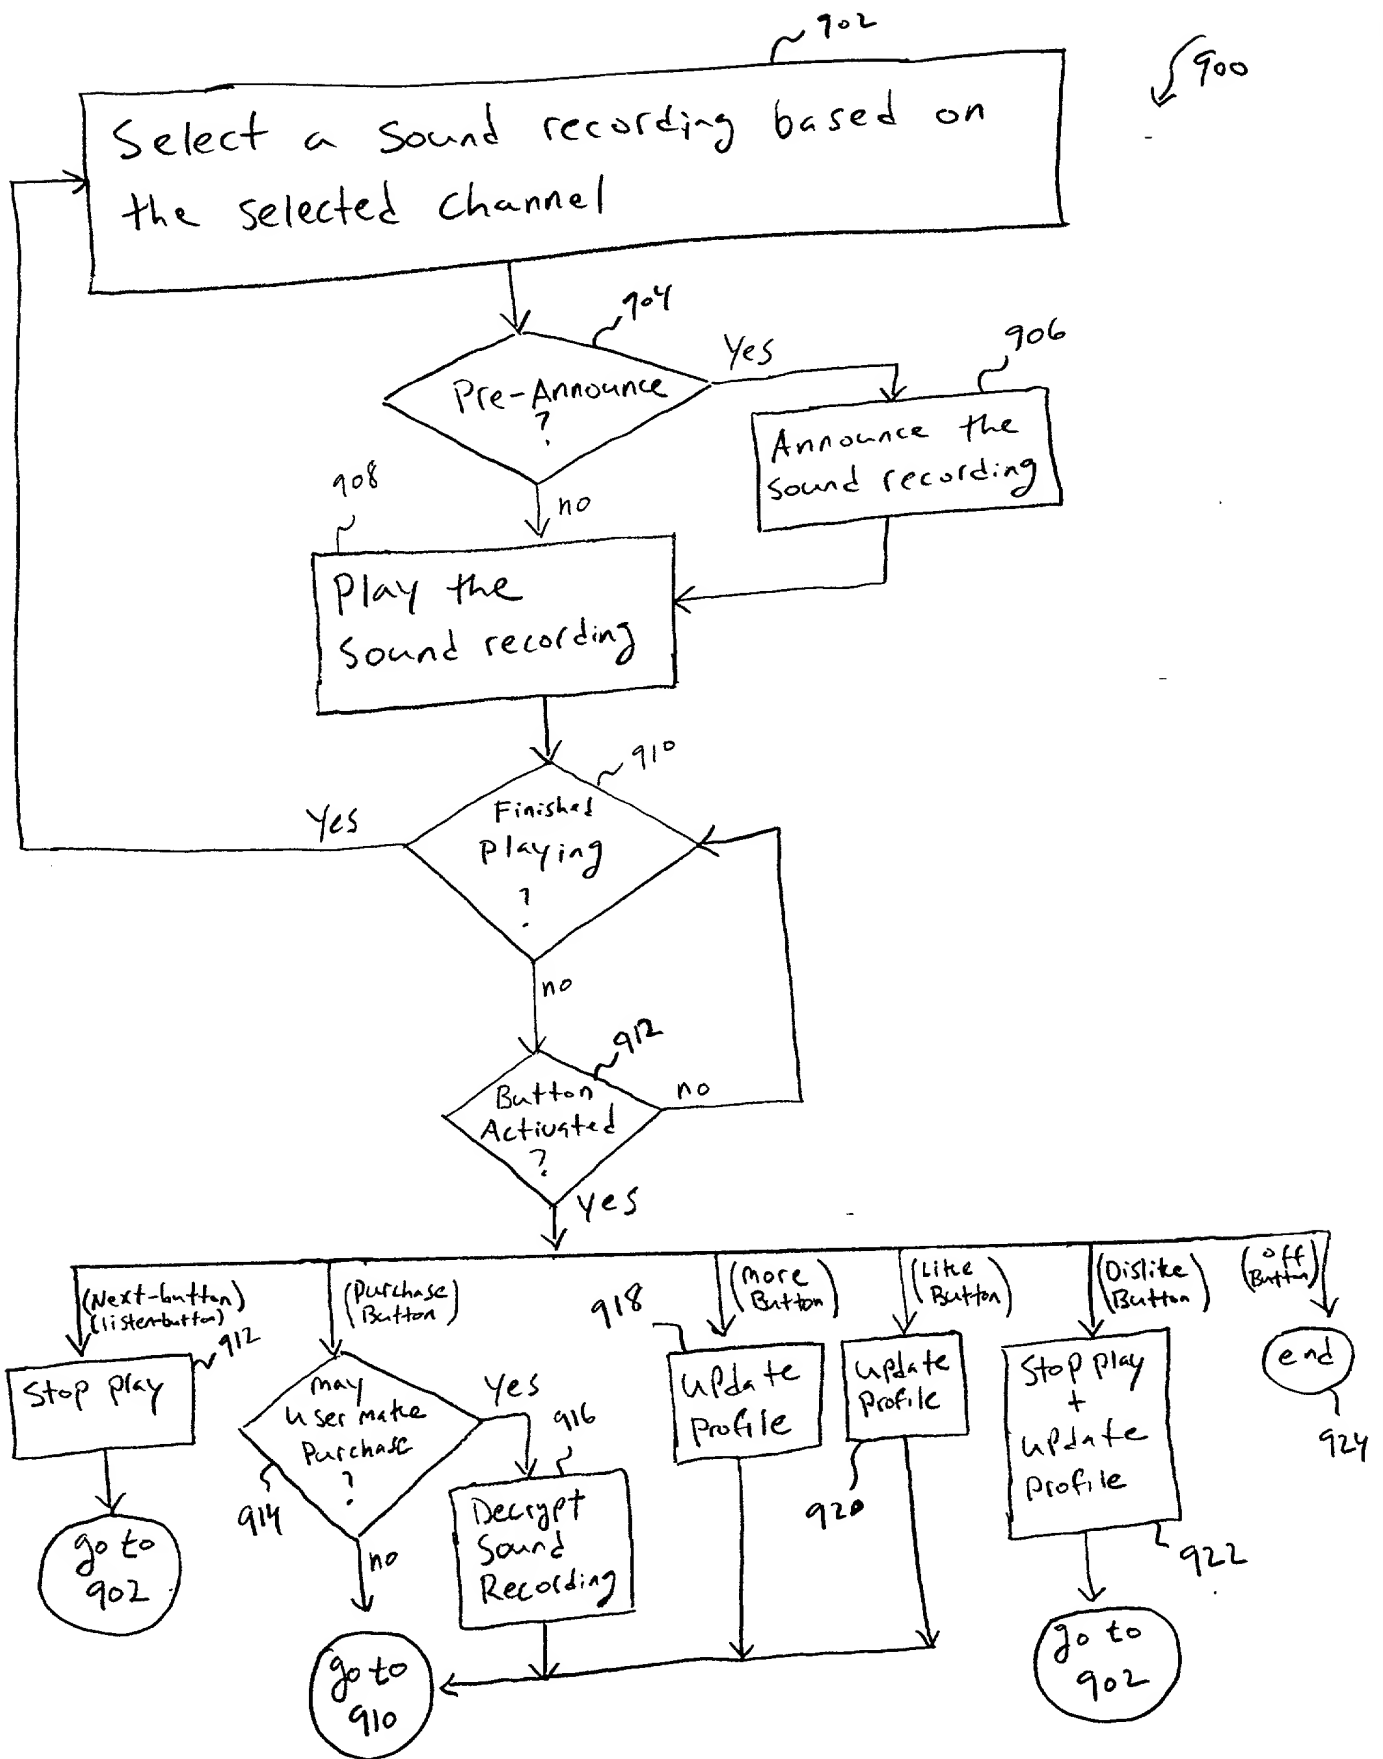 902
900
Select a Sound recording based on
the selected channel
904
Pre-Announce
?
Yes
906
Announce the
sound recording
no
908
Play the
Sound recording
910
Finished
Playing
?
Yes
no
912
Button
Activated
?
no
Yes
(Next-button)
(listen-button)
912
Stop play
go to
902
(Purchase
Button)
May
User make
Purchase
?
914
Yes
no
916
Decrypt
Sound
Recording
go to
910
(more
Button)
918
update
Profile
(Like
Button)
update
Profile
920
(Dislike
Button)
Stop play
+
update
Profile
922
go to
902
(off
Button)
end
924